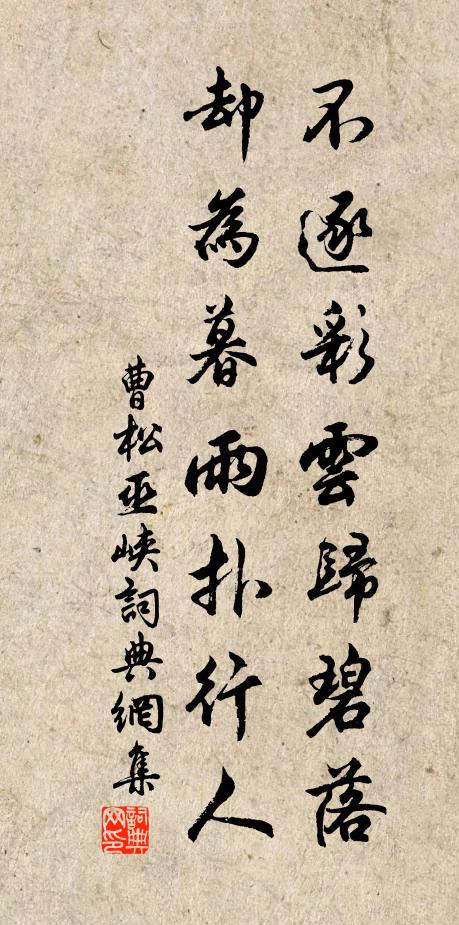 不逐彩雲歸碧落
却為暮雨扑行人
曹松巫峽詞典網集
詞典网印